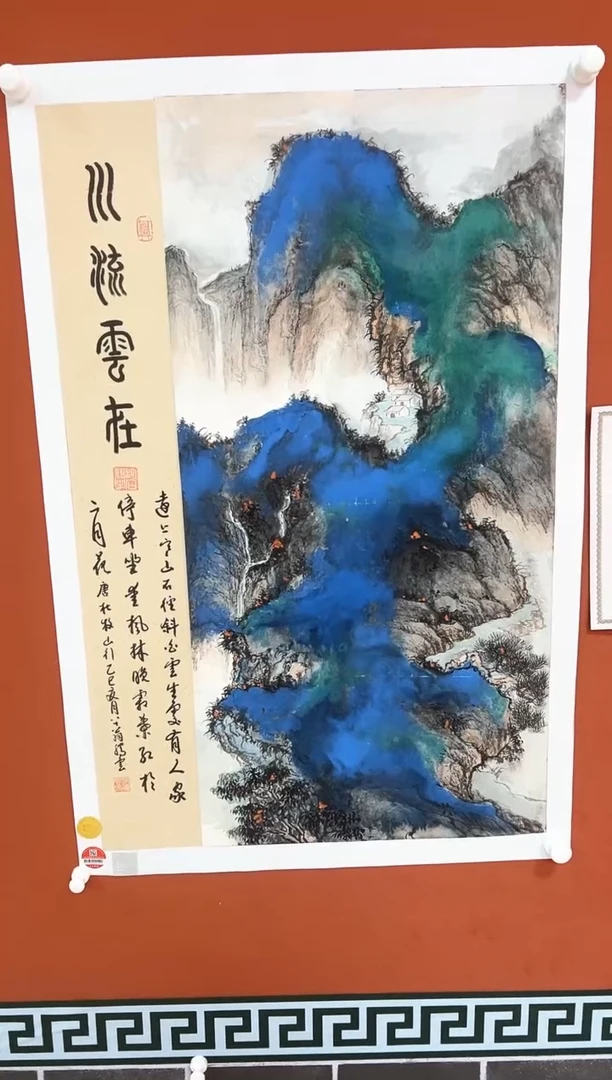 川流雲在
遠上寒山石徑斜白雲生處有人家
停車坐愛楓林晚霜葉紅於
二月花 唐杜牧山行乙巳夏月